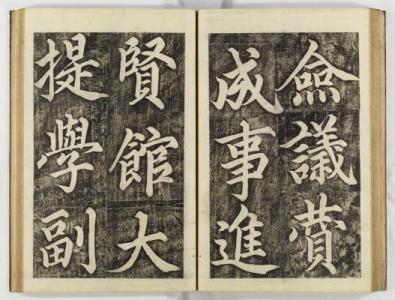 僉議賛
成事進
賢館大
提學副